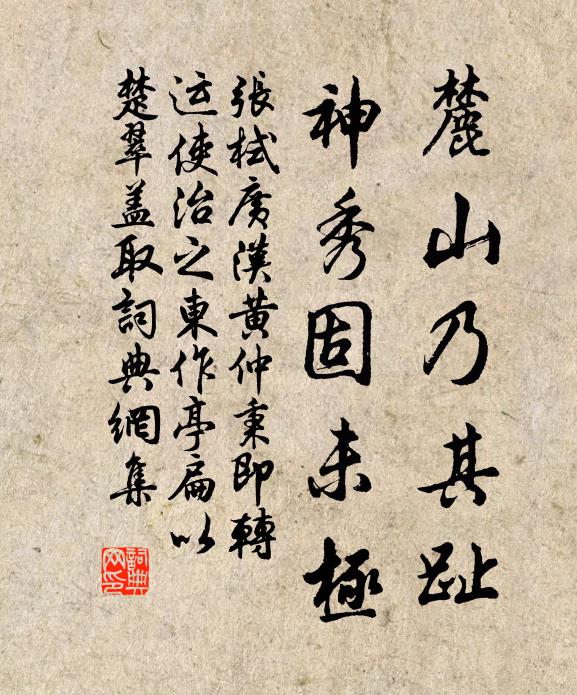 麓山乃其趾
神秀固未極
張栻廣漢黄仲秉即轉
运使治之東作亭扁以
楚翠盖取詞典網集
詞典
网印